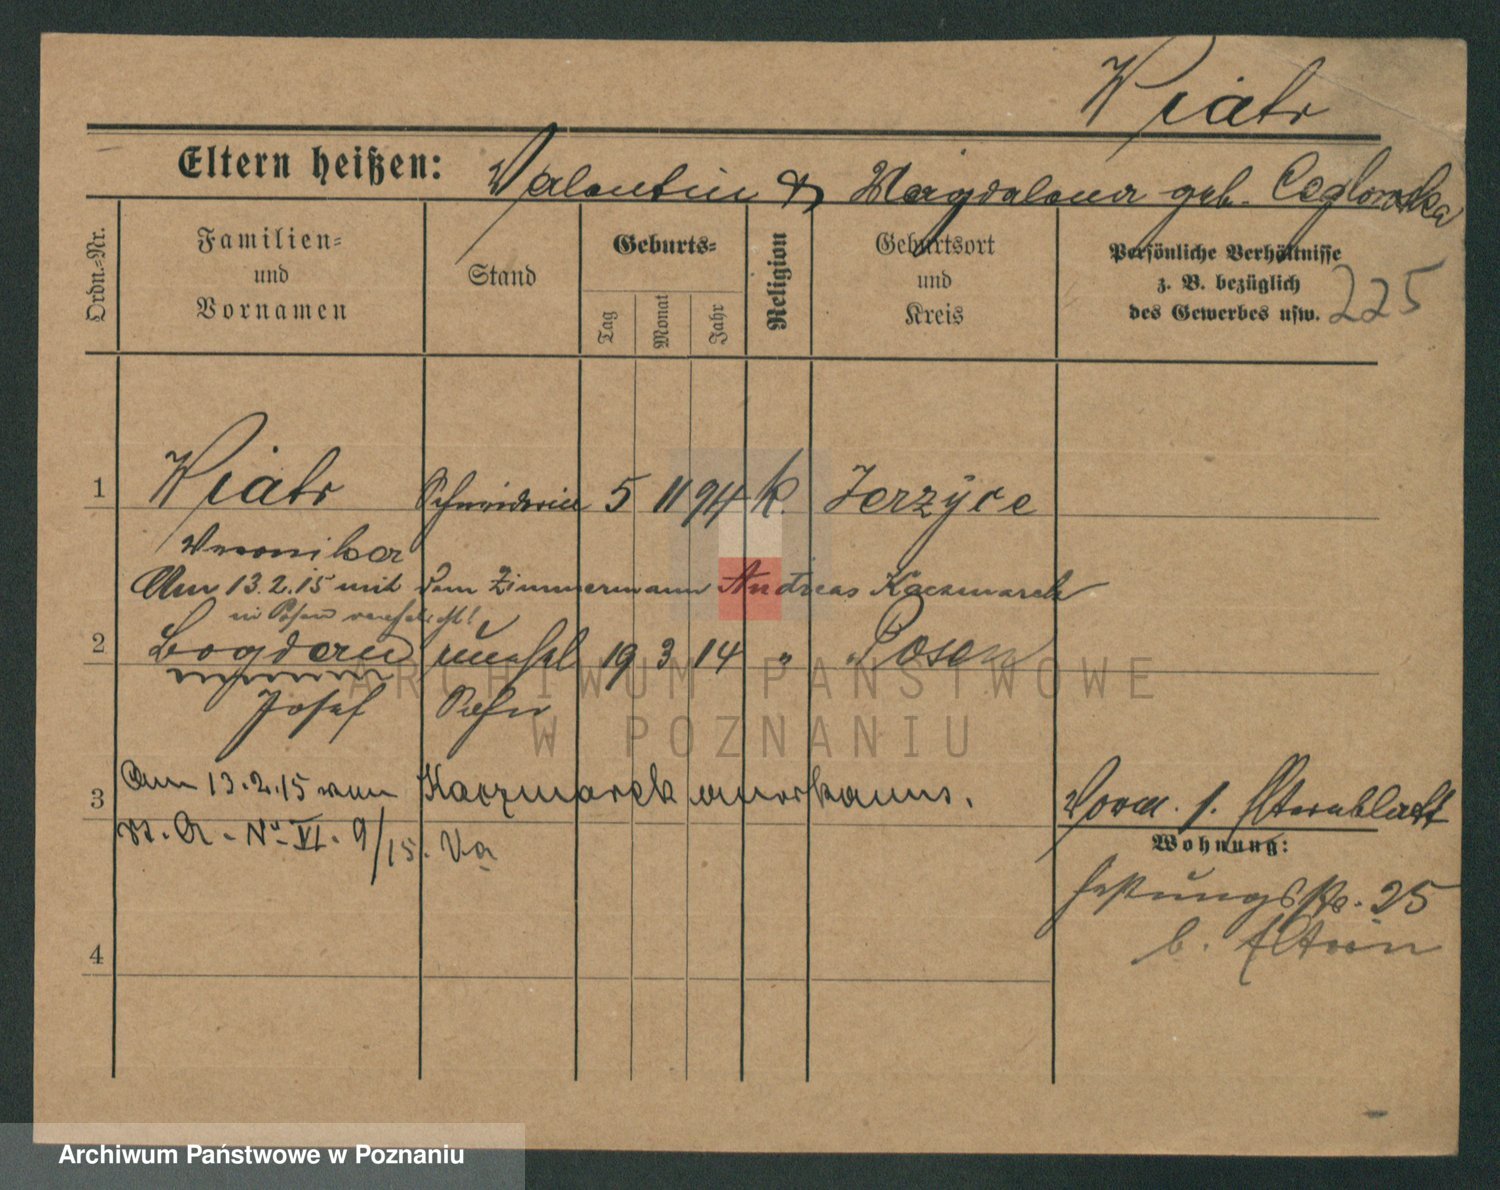 Wiatr
Eltern heißen: Valentin & Magdalena geb. Ceglowska
Ordn.-Nr.
Familien-
und
Vornamen
Stand
Geburts-
Tag
Monat
Jahr
Religion
Geburtsort
und
Kreis
Persönliche Verhältnisse
z. B. bezüglich
des Gewerbes usw.
225
1 Wiatr Schneiderin 5 11 94 k. Jerzyce
Veronika
Am 13.2.15 mit dem Zimmermann Andreas Kaczmarek
in Posen verehelicht!
2 Bogdan unehel 19 3 14 " Posen
Josef Sohn
3 Am 13.2.15 vom Kaczmarek anerkannt.
St. A. No VI. 9/15. Va
4
Vorm. s. Elternblatt
Wohnung:
Festungsstr. 25
b. Eltern
ARCHIWUM PAŃSTWOWE
W POZNANIU
Archiwum Państwowe w Poznaniu